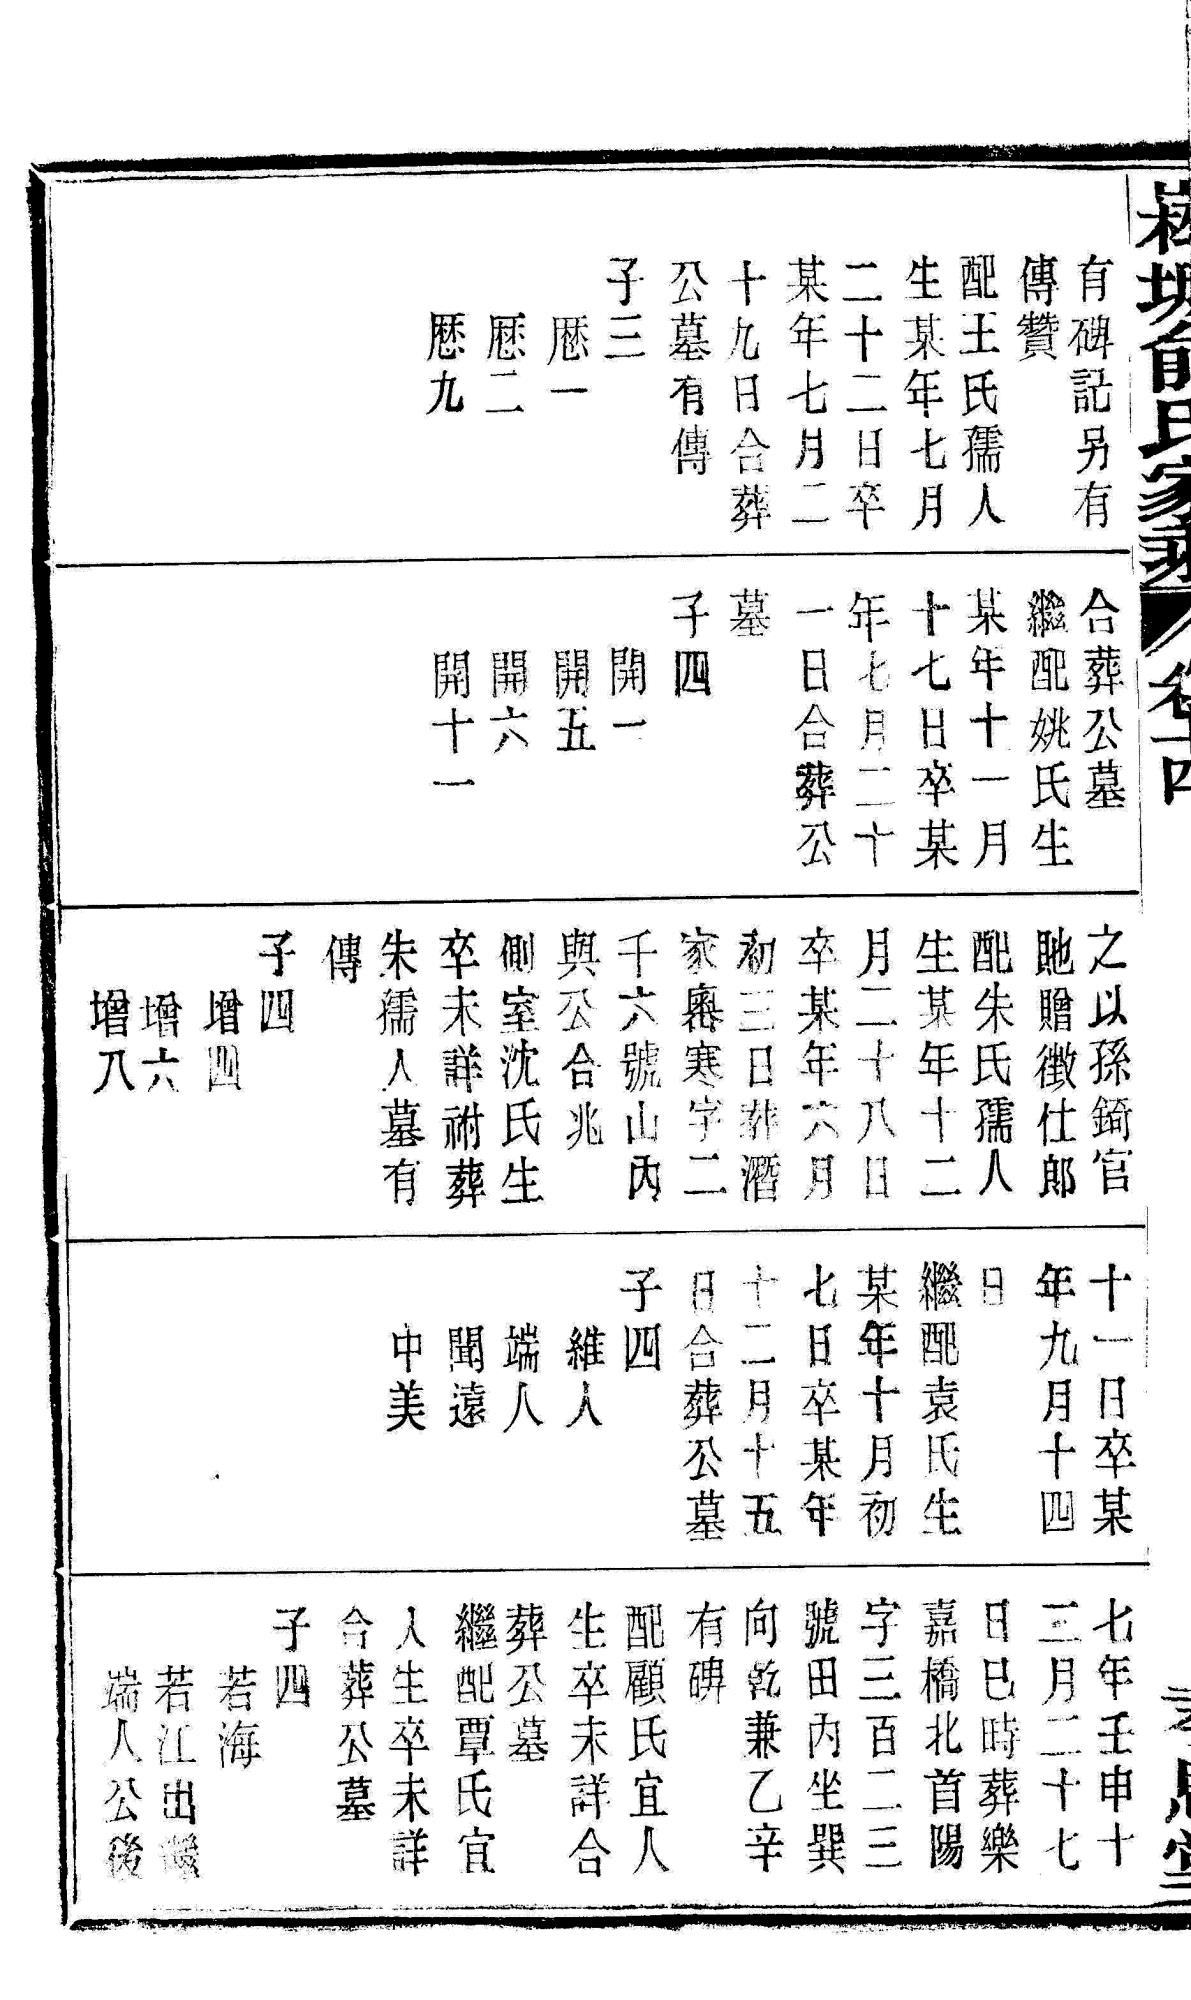 俞氏家乘
卷十四
有碑記另有
傳贊
配王氏孺人
生某年七月
二十二日卒
某年七月二
十九日合葬
公墓有傳
子三
厯一
厯二
厯九
合葬公墓
繼配姚氏生
某年十一月
十七日卒某
年七月二十
一日合葬公
墓
子四
開一
開五
開六
開十一
之以孫錡官
貤贈徵仕郎
配朱氏孺人
生某年十二
月二十八日
卒某年六月
初三日葬潛
家塢寒字二
千六號山內
與公合兆
側室沈氏生
卒未詳祔葬
朱孺人墓有
傳
子四
增四
增六
增八
十一日卒某
年九月十四
日
繼配袁氏生
某年十月初
七日卒某年
十二月十五
日合葬公墓
子四
維人
端人
聞遠
中美
七年壬申十
二月二十七
日巳時葬樂
嘉橋北首陽
字三百二三
號田內坐巽
向乾兼乙辛
有碑
配顧氏宜人
生卒未詳合
葬公墓
繼配覃氏宜
人生卒未詳
合葬公墓
子四
若海
若江出繼
端人公後
思堂